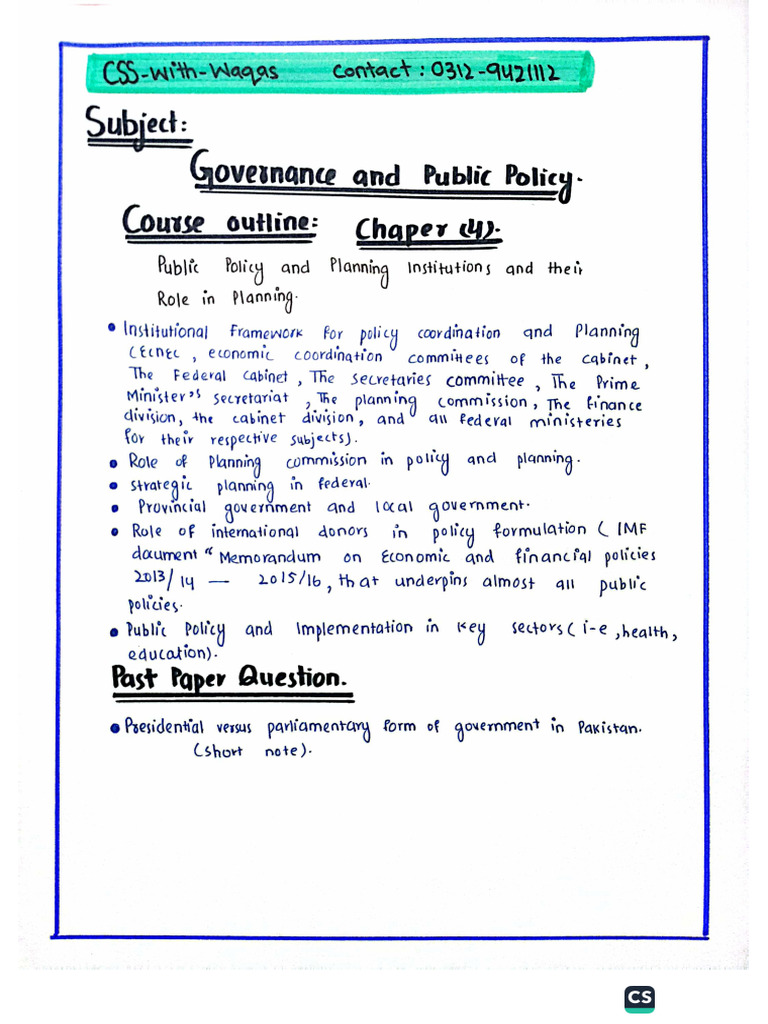 CSS-with-Waqas contact : 0312-9421112
Subject:
Governance and Public Policy.
Course outline: Chaper (4).
Public Policy and Planning Institutions and their
Role in Planning.
• Institutional framework for policy coordination and Planning
(ECNEC , economic coordination committees of the cabinet ,
The Federal Cabinet , The Secretaries committee , The Prime
Minister's secretariat , The planning commission, The finance
division, the cabinet division, and all federal ministeries
for their respective subjects).
• Role of Planning commission in policy and planning.
• strategic planning in federal.
• Provincial government and local government.
• Role of international donors in policy formulation ( IMF
document " Memorandum on Economic and financial policies
2013/14 — 2015/16, that underpins almost all public
policies.
• Public Policy and Implementation in key sectors ( i-e , health,
education).
Past Paper Question.
• Presidential versus parliamentary form of government in Pakistan.
(short note).
CS